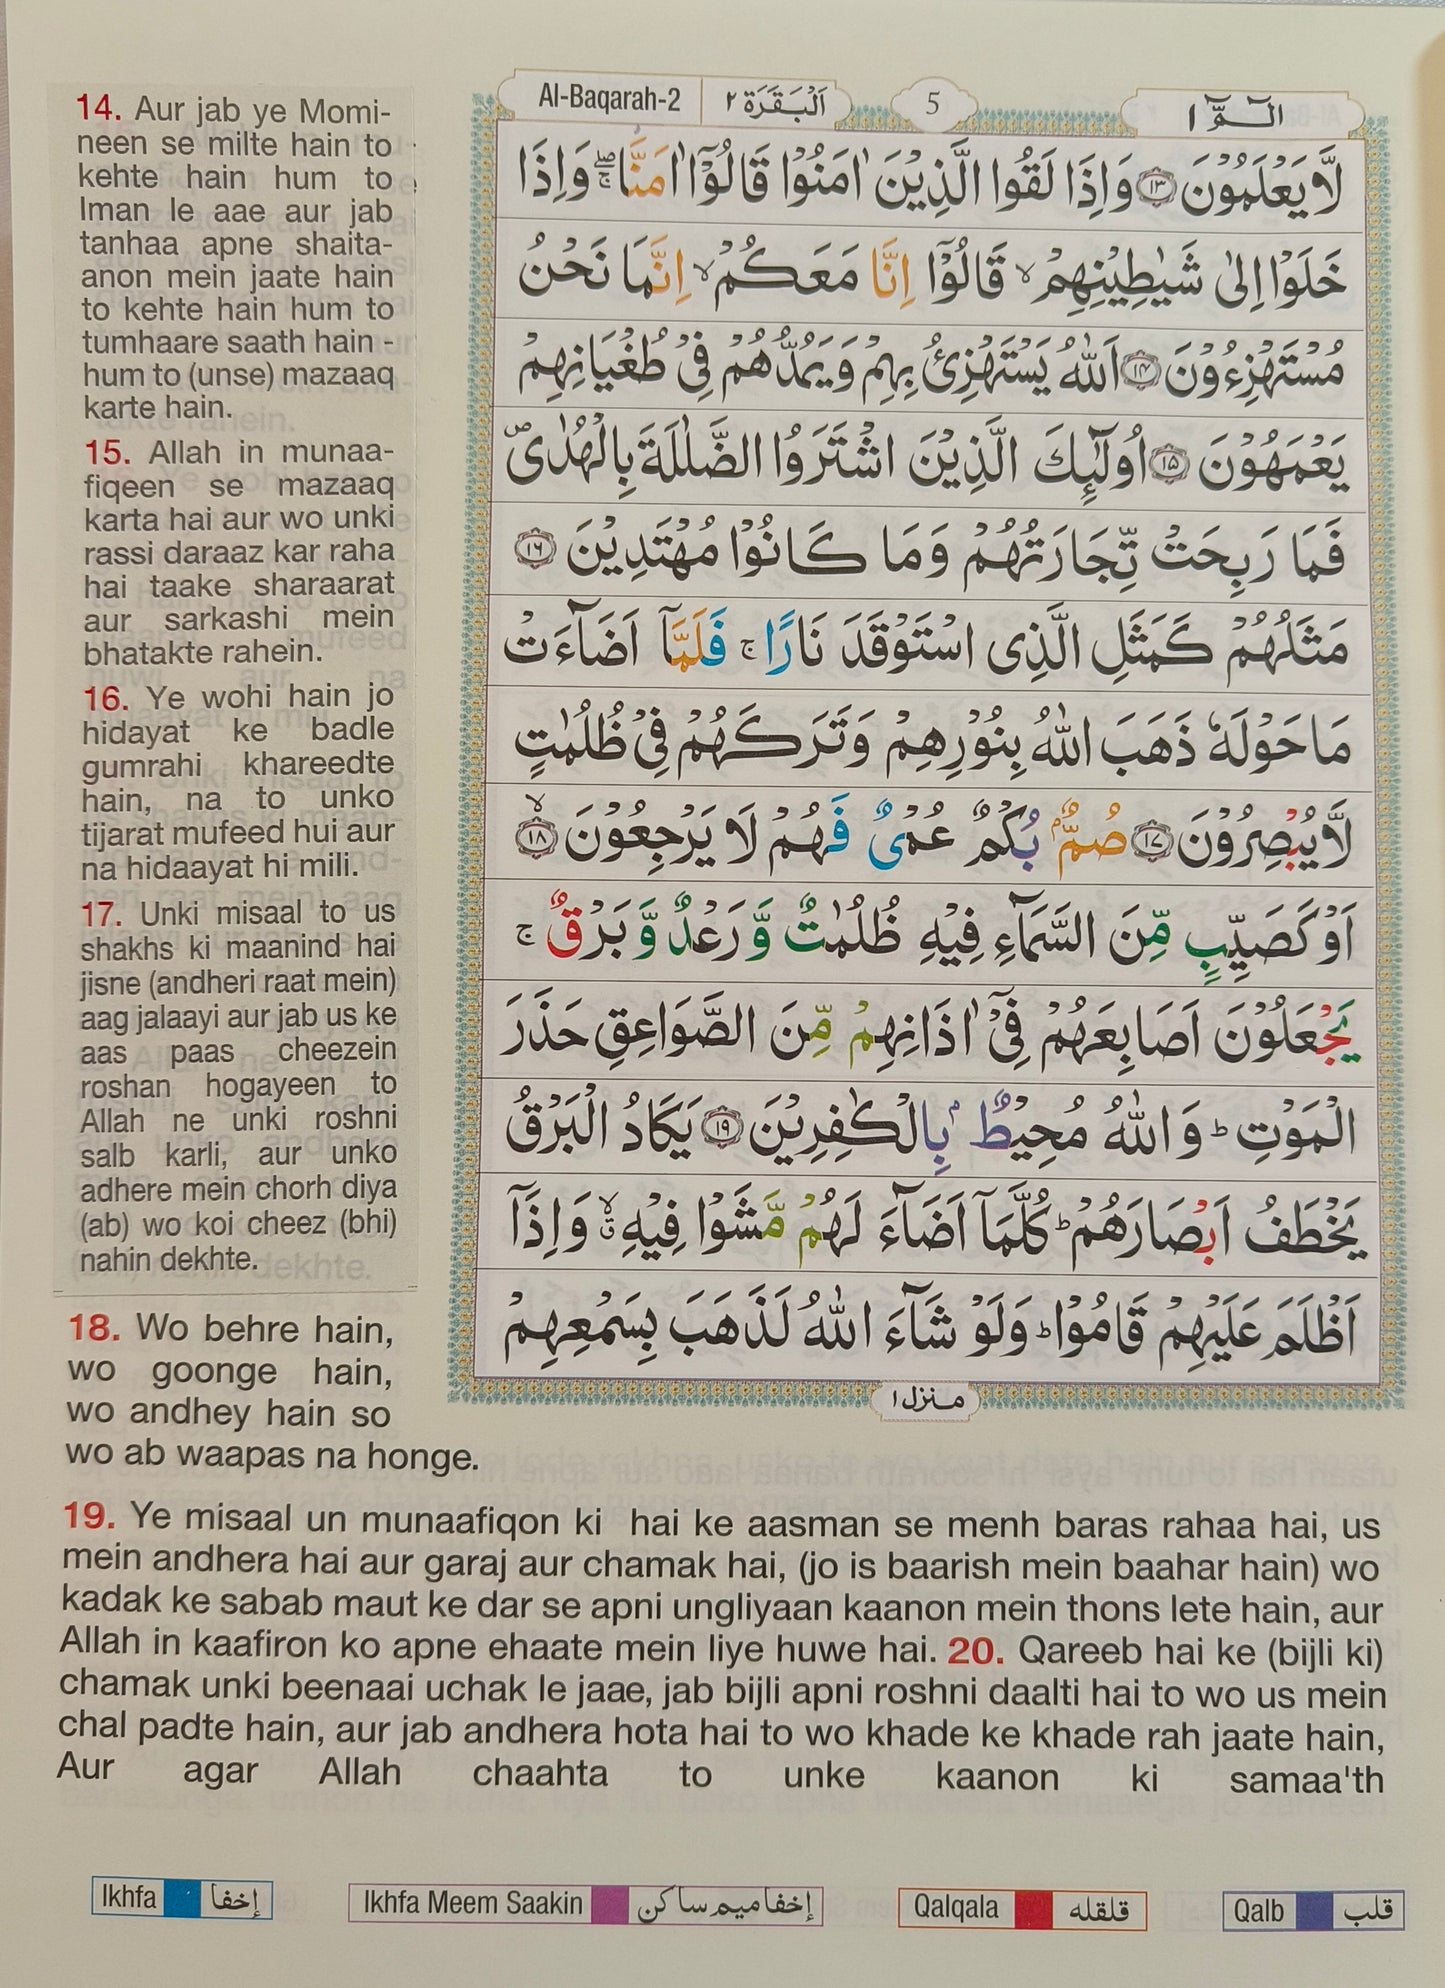 Al-Baqarah-2
اَلْبَقَرَة ٢
5
الٓـمّٓ ١
لَّا يَعْلَمُوْنَ ١٣ وَاِذَا لَقُوا الَّذِيْنَ اٰمَنُوْا قَالُوْٓا اٰمَنَّا ۖۚ وَاِذَا
خَلَوْا اِلٰى شَيٰطِيْنِهِمْ ۙ قَالُوْٓا اِنَّا مَعَكُمْ ۙ اِنَّمَا نَحْنُ
مُسْتَهْزِءُوْنَ ١٤ اَللّٰهُ يَسْتَهْزِئُ بِهِمْ وَيَمُدُّهُمْ فِيْ طُغْيَانِهِمْ
يَعْمَهُوْنَ ١٥ اُولٰٓئِكَ الَّذِيْنَ اشْتَرَوُا الضَّلٰلَةَ بِالْهُدٰى ۪
فَمَا رَبِحَتْ تِّجَارَتُهُمْ وَمَا كَانُوْا مُهْتَدِيْنَ ١٦
مَثَلُهُمْ كَمَثَلِ الَّذِى اسْتَوْقَدَ نَارًا ۚ فَلَمَّآ اَضَآءَتْ
مَا حَوْلَهٗ ذَهَبَ اللّٰهُ بِنُوْرِهِمْ وَتَرَكَهُمْ فِيْ ظُلُمٰتٍ
لَّا يُبْصِرُوْنَ ١٧ صُمٌّۢ بُكْمٌ عُمْىٌ فَهُمْ لَا يَرْجِعُوْنَ ۙ ١٨
اَوْ كَصَيِّبٍ مِّنَ السَّمَآءِ فِيْهِ ظُلُمٰتٌ وَّرَعْدٌ وَّبَرْقٌ ۚ
يَجْعَلُوْنَ اَصَابِعَهُمْ فِيْٓ اٰذَانِهِمْ مِّنَ الصَّوَاعِقِ حَذَرَ
الْمَوْتِ ؕ وَاللّٰهُ مُحِيْطٌۢ بِالْكٰفِرِيْنَ ١٩ يَكَادُ الْبَرْقُ
يَخْطَفُ اَبْصَارَهُمْ ؕ كُلَّمَآ اَضَآءَ لَهُمْ مَّشَوْا فِيْهِ ۙۗ وَاِذَآ
اَظْلَمَ عَلَيْهِمْ قَامُوْا ؕ وَلَوْ شَآءَ اللّٰهُ لَذَهَبَ بِسَمْعِهِمْ
منزل ١
14. Aur jab ye Momi-
neen se milte hain to
kehte hain hum to
Iman le aae aur jab
tanhaa apne shaita-
anon mein jaate hain
to kehte hain hum to
tumhaare saath hain -
hum to (unse) mazaaq
karte hain.
15. Allah in munaa-
fiqeen se mazaaq
karta hai aur wo unki
rassi daraaz kar raha
hai taake sharaarat
aur sarkashi mein
bhatakte rahein.
16. Ye wohi hain jo
hidayat ke badle
gumrahi khareedte
hain, na to unko
tijarat mufeed hui aur
na hidaayat hi mili.
17. Unki misaal to us
shakhs ki maanind hai
jisne (andheri raat mein)
aag jalaayi aur jab us ke
aas paas cheezein
roshan hogayeen to
Allah ne unki roshni
salb karli, aur unko
adhere mein chorh diya
(ab) wo koi cheez (bhi)
nahin dekhte.
18. Wo behre hain,
wo goonge hain,
wo andhey hain so
wo ab waapas na honge.
19. Ye misaal un munaafiqon ki hai ke aasman se menh baras rahaa hai, us
mein andhera hai aur garaj aur chamak hai, (jo is baarish mein baahar hain) wo
kadak ke sabab maut ke dar se apni ungliyaan kaanon mein thons lete hain, aur
Allah in kaafiron ko apne ehaate mein liye huwe hai. 20. Qareeb hai ke (bijli ki)
chamak unki beenaai uchak le jaae, jab bijli apni roshni daalti hai to wo us mein
chal padte hain, aur jab andhera hota hai to wo khade ke khade rah jaate hain,
Aur agar Allah chaahta to unke kaanon ki samaa'th
Ikhfa إخفا
Ikhfa Meem Saakin إخفا ميم ساكن
Qalqala قلقله
Qalb قلب